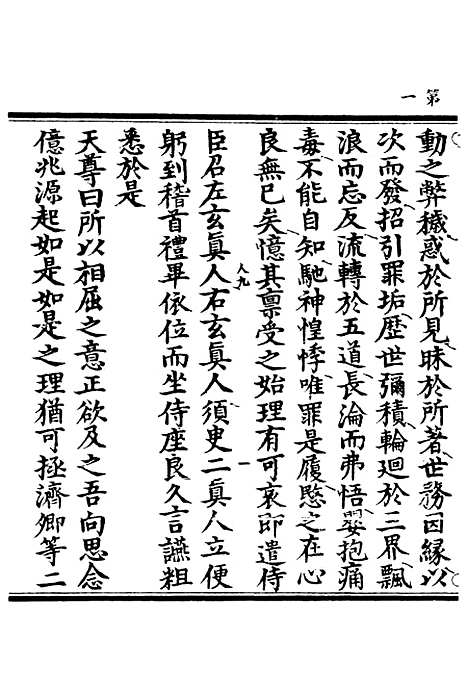 第一
動之弊穢惑於所見昧於所著世務因緣以
次而發招引罪垢歷世彌積輪迴於三界飄
浪而忘反流轉於五道長淪而弗悟嬰抱痛
毒不能自知馳神惶悸唯罪是履愍之在心
良無已矣憶其禀受之始理有可哀即遣侍
人九
一
臣召左玄眞人右玄眞人須臾二眞人立便
躬到稽首禮畢依位而坐侍座良久言讌粗
悉於是
天尊曰所以相屈之意正欲及之吾向思念
億兆源起如是如是之理猶可拯濟卿等二